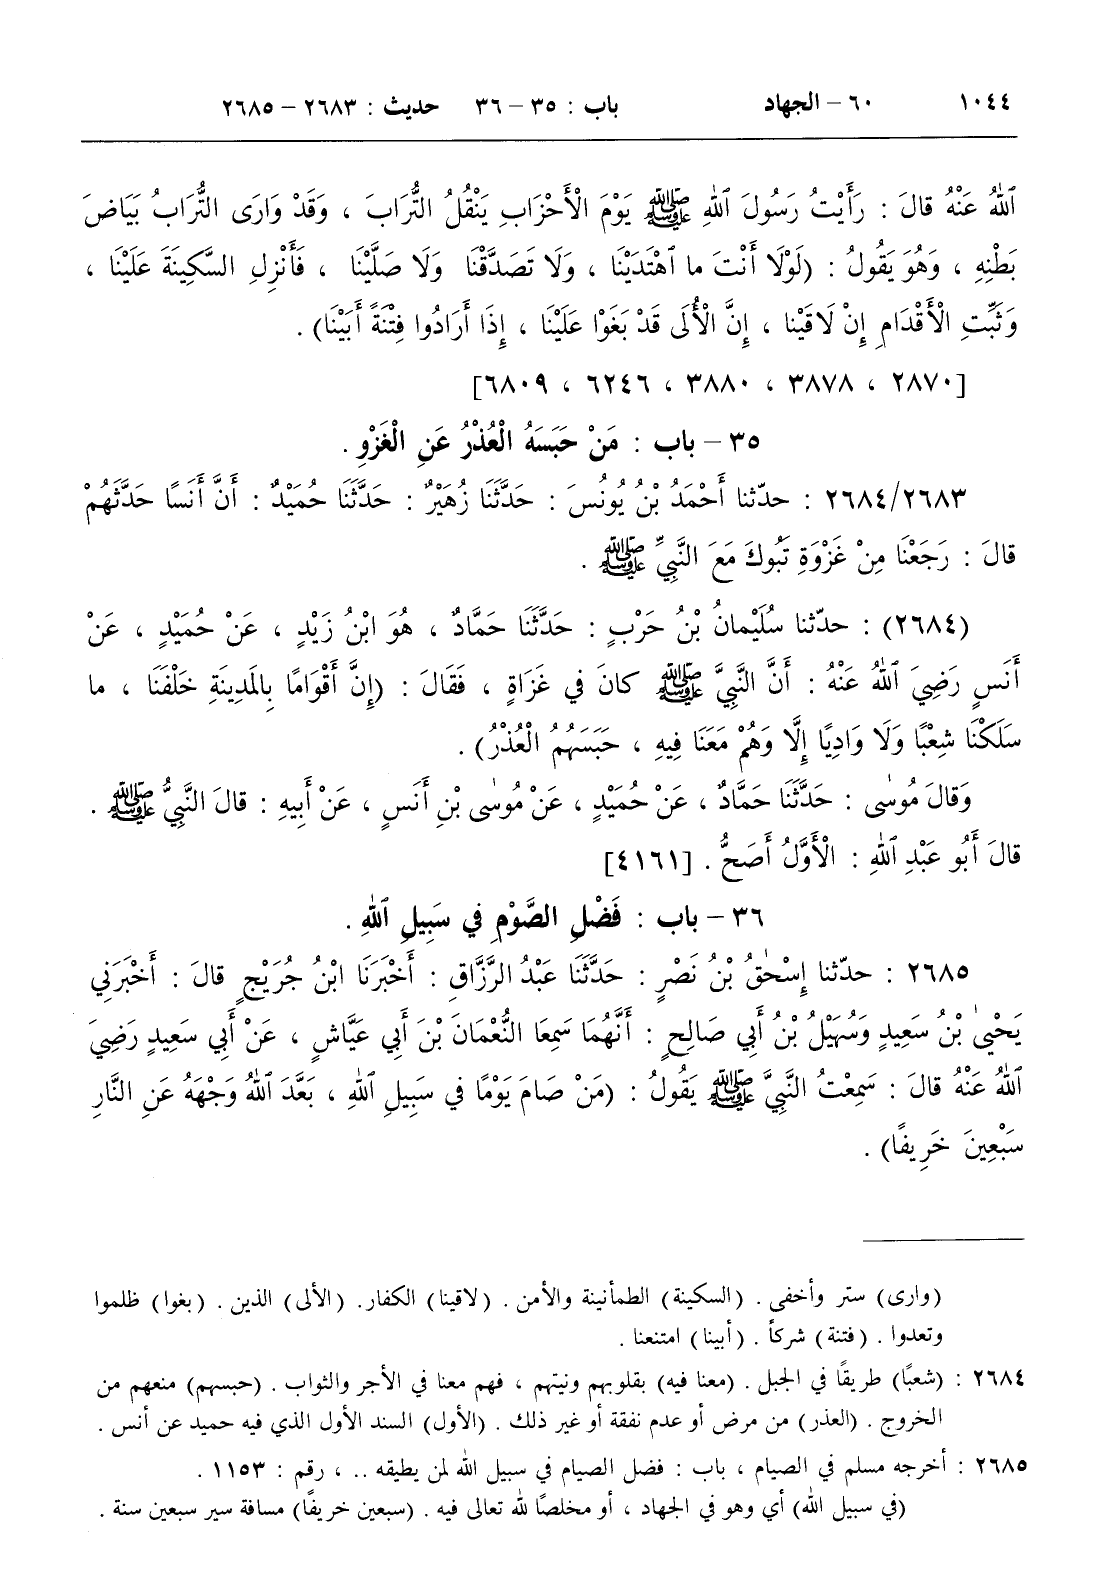 ١٠٤٤ ٦٠ – الجهاد باب : ٣٥ – ٣٦ حديث : ٢٦٨٣ – ٢٦٨٥
ٱللهُ عَنْهُ قالَ : رَأَيْتُ رَسُولَ ٱللهِ ﷺ يَوْمَ الْأَحْزَابِ يَنْقُلُ التُّرَابَ ، وَقَدْ وَارَى التُّرَابُ بَيَاضَ
بَطْنِهِ ، وَهُوَ يَقُولُ : (لَوْلَا أَنْتَ ما ٱهْتَدَيْنَا ، وَلَا تَصَدَّقْنَا وَلَا صَلَّيْنَا ، فَأَنْزِلِ السَّكِينَةَ عَلَيْنَا ،
وَثَبِّتِ الْأَقْدَامِ إِنْ لَاقَيْنا ، إِنَّ الْأُلَى قَدْ بَغَوْا عَلَيْنَا ، إِذَا أَرَادُوا فِتْنَةً أَبَيْنَا) .
[٢٨٧٠ ، ٣٨٧٨ ، ٣٨٨٠ ، ٦٢٤٦ ، ٦٨٠٩]
٣٥ – باب : مَنْ حَبَسَهُ الْعُذْرُ عَنِ الْغَزْوِ .
٢٦٨٤/٢٦٨٣ : حدّثنا أَحْمَدُ بْنُ يُونُسَ : حَدَّثَنَا زُهَيْرٌ : حَدَّثَنَا حُمَيْدٌ : أَنَّ أَنَسًا حَدَّثَهُمْ
قالَ : رَجَعْنَا مِنْ غَزْوَةِ تَبُوكَ مَعَ النَّبِيِّ ﷺ .
(٢٦٨٤) : حدّثنا سُلَيْمانُ بْنُ حَرْبٍ : حَدَّثَنَا حَمَّادٌ ، هُوَ ابْنُ زَيْدٍ ، عَنْ حُمَيْدٍ ، عَنْ
أَنَسٍ رَضِيَ ٱللهُ عَنْهُ : أَنَّ النَّبِيَّ ﷺ كانَ في غَزَاةٍ ، فَقَالَ : (إِنَّ أَقْوَامًا بِالمَدِينَةِ خَلْفَنَا ، ما
سَلَكْنَا شِعْبًا وَلَا وَادِيًا إِلَّا وَهُمْ مَعَنَا فِيهِ ، حَبَسَهُمُ الْعُذْرُ) .
وَقالَ مُوسٰى : حَدَّثَنَا حَمَّادٌ ، عَنْ حُمَيْدٍ ، عَنْ مُوسٰى بْنِ أَنَسٍ ، عَنْ أَبِيهِ : قالَ النَّبِيُّ ﷺ .
قالَ أَبُو عَبْدِ ٱللهِ : الْأَوَّلُ أَصَحُّ . [٤١٦١]
٣٦ – باب : فَضْلِ الصَّوْمِ في سَبِيلِ ٱللهِ .
٢٦٨٥ : حدّثنا إِسْحٰقُ بْنُ نَصْرٍ : حَدَّثَنَا عَبْدُ الرَّزَّاقِ : أَخْبَرَنَا ابْنُ جُرَيْجٍ قالَ : أَخْبَرَنِي
يَحْيىٰ بْنُ سَعِيدٍ وَسُهَيْلُ بْنُ أَبِي صَالِحٍ : أَنَّهُمَا سَمِعَا النُّعْمَانَ بْنَ أَبِي عَيَّاشٍ ، عَنْ أَبِي سَعِيدٍ رَضِيَ
ٱللهُ عَنْهُ قالَ : سَمِعْتُ النَّبِيَّ ﷺ يَقُولُ : (مَنْ صَامَ يَوْمًا في سَبِيلِ ٱللهِ ، بَعَّدَ ٱللهُ وَجْهَهُ عَنِ النَّارِ
سَبْعِينَ خَرِيفًا) .
(وارى) ستر وأخفى . (السكينة) الطمأنينة والأمن . (لاقينا) الكفار. (الألى) الذين . (بغوا) ظلموا
وتعدوا . (فتنة) شركاً . (أبينا) امتنعنا .
٢٦٨٤ : (شعبًا) طريقًا في الجبل . (معنا فيه) بقلوبهم ونيتهم ، فهم معنا في الأجر والثواب . (حبسهم) منعهم من
الخروج . (العذر) من مرض أو عدم نفقة أو غير ذلك . (الأول) السند الأول الذي فيه حميد عن أنس .
٢٦٨٥ : أخرجه مسلم في الصيام ، باب : فضل الصيام في سبيل الله لمن يطيقه .. ، رقم : ١١٥٣ .
(في سبيل الله) أي وهو في الجهاد ، أو مخلصًا لله تعالى فيه . (سبعين خريفًا) مسافة سير سبعين سنة .